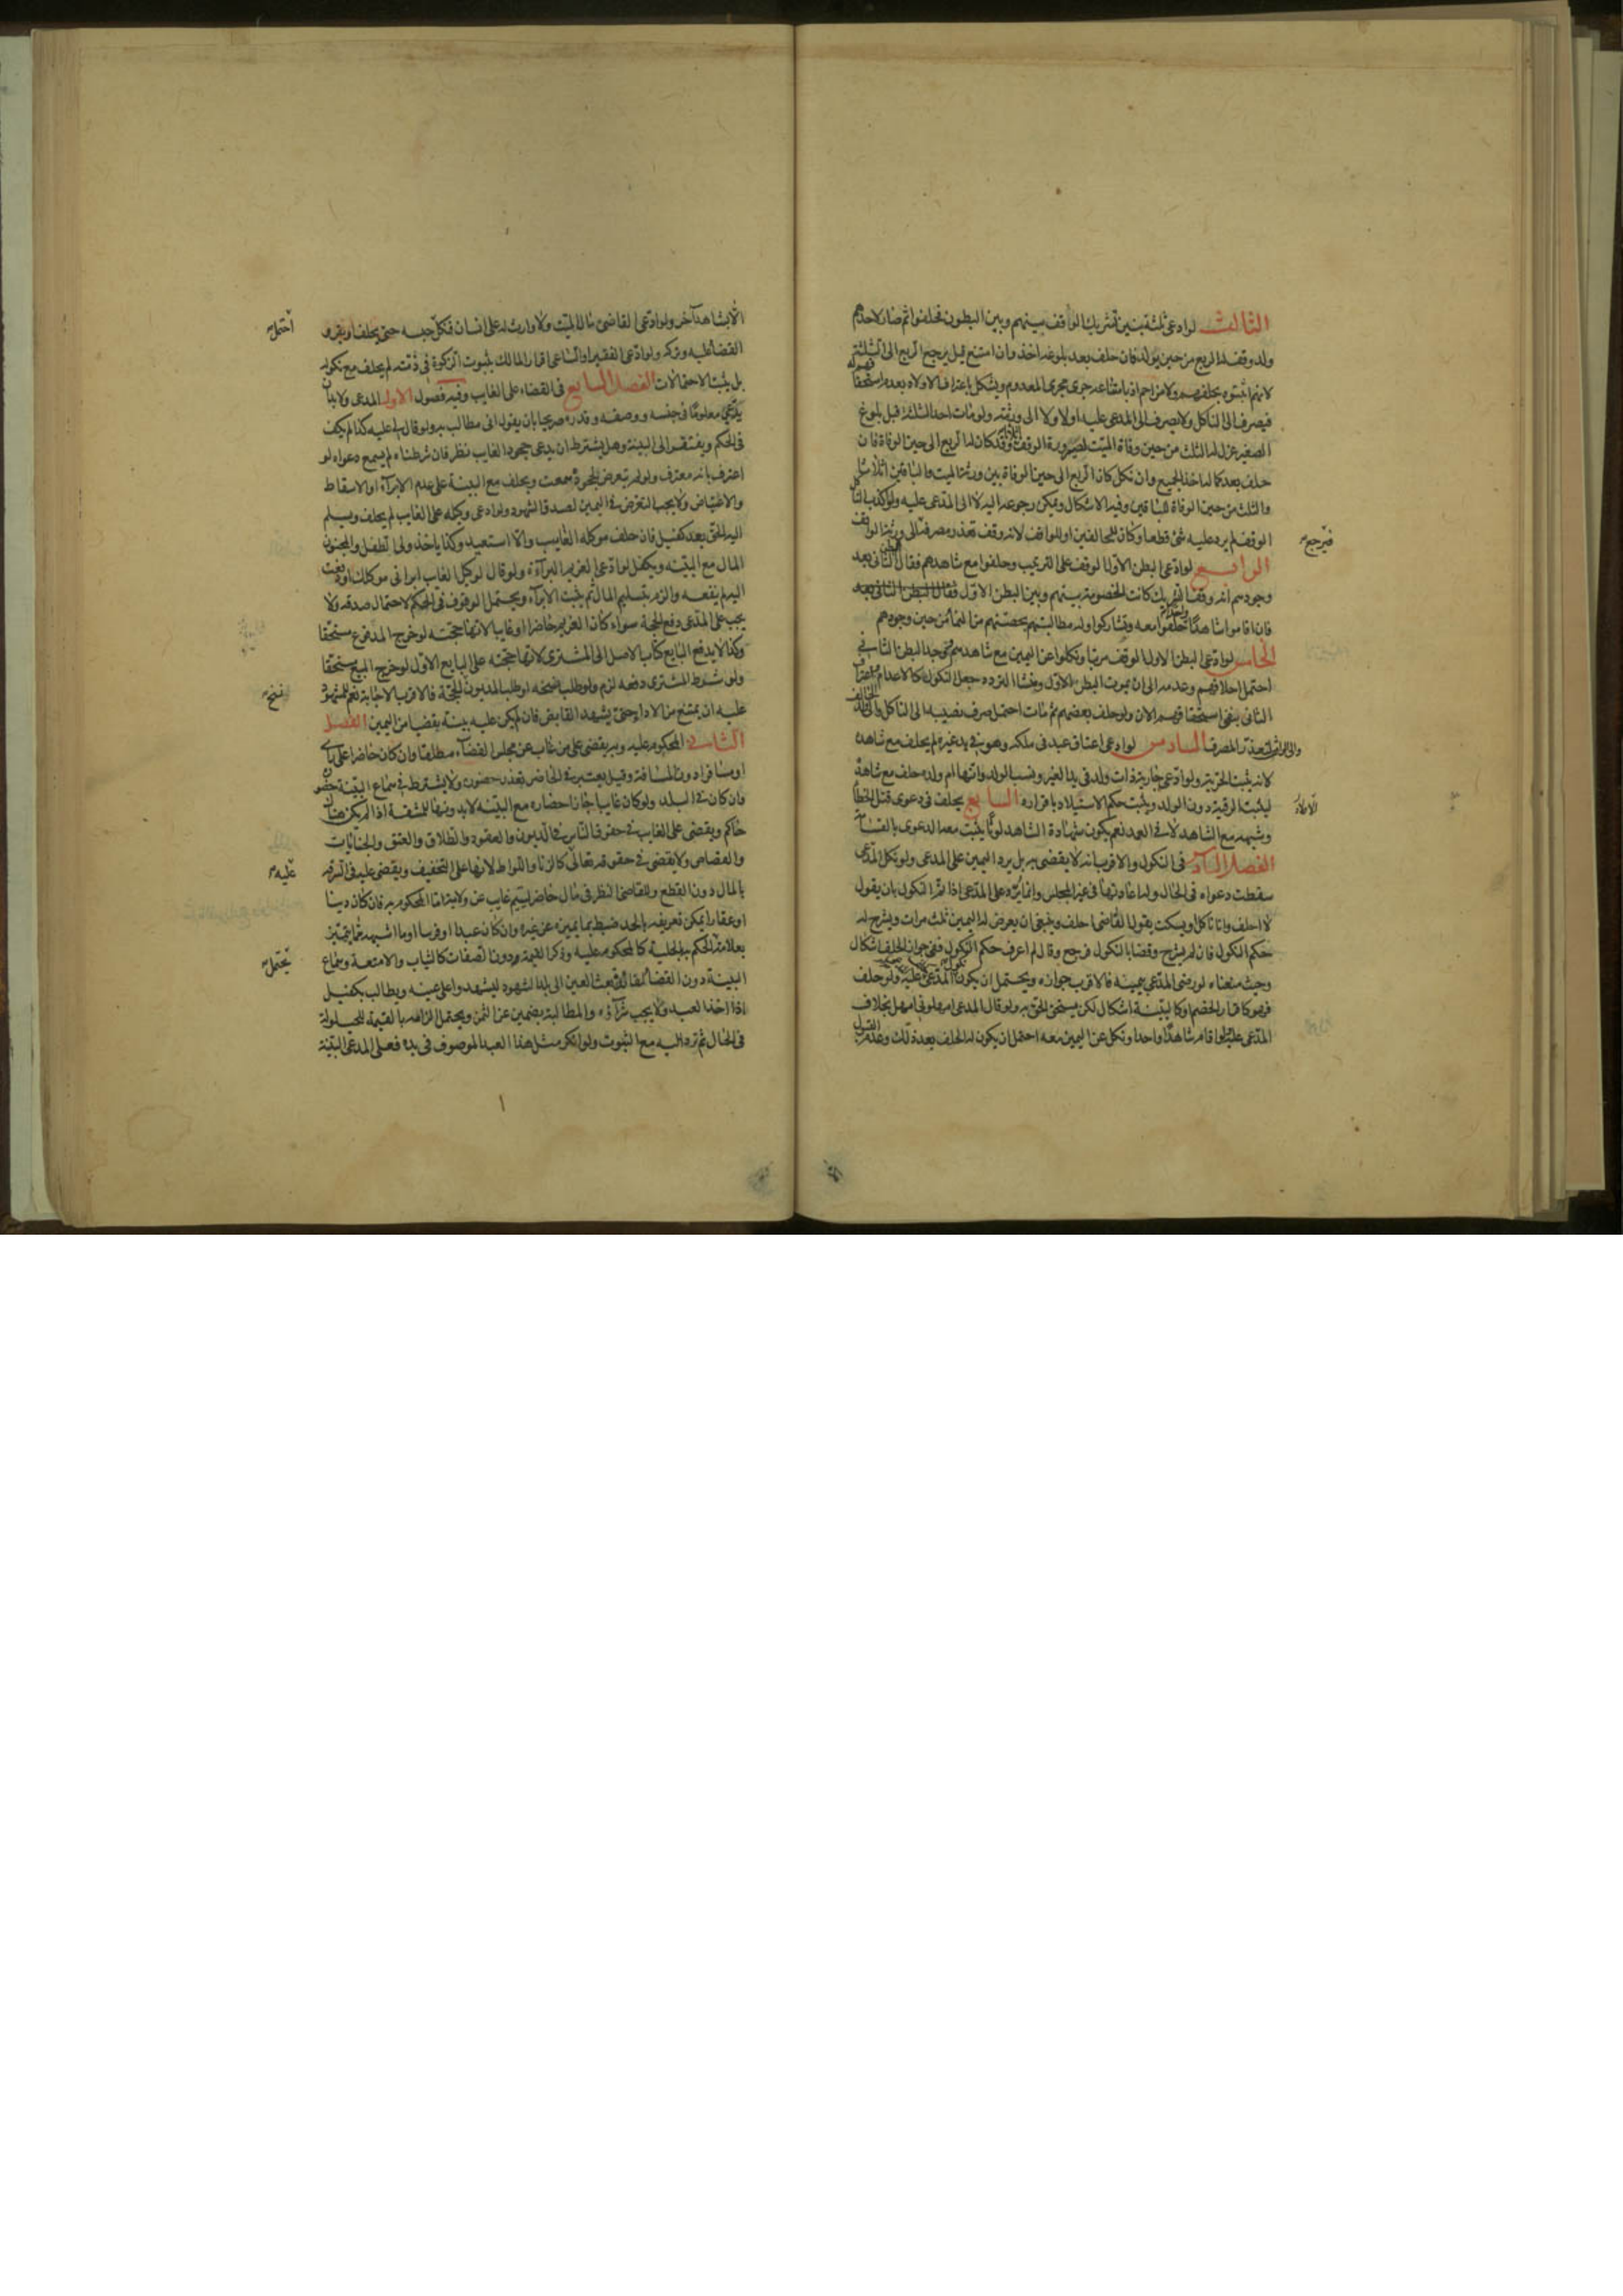 الثالث لو ادعى ثلثة بنين تشريك الواقف بينهم وبين البطون فحلفوا ثم صار لاحدهم
ولد وقف له الربع من حين يولد فان حلف بعد بلوغه اخذ وان امتنع قيل يرجع الربع الى الثلثة
لانهم اثبتوه بحلفهم ولا مزاحم اذ بامتناعه جرى مجرى المعدوم ويشكل باعترافـ الاولاد بعدم استحقاقهم له
فيصرف الى الناكل ولا يصرف الى المدعى عليه اولا ولا الى ورثته ولو مات احد الثلثة قبل بلوغ
الصغير عزل له الثلث من حين وفاة الميت لصيرورة الوقف اثلاثا وقد كان له الربع الى حين الوفاة فان
حلف بعد كماله اخذ الجميع وان نكل كان الربع الى حين الوفاة بين ورثة الميت والباقين اثلاثا
والثلث من حين الوفاة للباقين وفيه الاشكال ويمكن رجوعه اليه لا الى المدعى عليه ولو اكذب الناكل
الوقف لم يرد عليه شئ قطعا وكان للحالفين او للواقف لانه وقف تعذر مصرفه الى ورثة الواقف
فيرجع
الرابع لو ادعى البطن الاول الوقف على الترتيب وحلفوا مع شاهدهم فقال البطن الثاني بعد
وجودهم انه وقف تشريك كانت الخصومة بينهم وبين البطن الاول فقال البطن الثاني بعد
فان اقاموا شاهدا واحدا حلفوا معه وتشاركوا وله مطالبتهم بحصتهم من النماء من حين وجودهم
الخامس لو ادعى البطن الاول الوقف مرتبا ونكلوا عن اليمين مع شاهدهم ثم وجد البطن الثاني
احتمل احلافهم وعدمه الى ان يموت البطن الاول ومنشا التردد جعل النكول كالاعدام من اعتراف
الثاني بنفي استحقاقهم الان ولو حلف بعضهم ثم مات احتمل صرف نصيبه الى الناكل والى ولد الحالف
والى الواقف لتعذر المصرف السادس لو ادعى اعتاق عبد في ملكه وهو في يد غيره لم يحلف مع شاهده
لانه يثبت الحرية ولو ادعى جارية ذات ولد في يد الغير ونسب الولد وانها ام ولده حلف مع شاهده
ليثبت الرقية دون الولد ويثبت حكم الاستيلاد باقراره السابع يحلف في دعوى قتل الخطأ
وشبهه مع الشاهد لا في العمد نعم يكون شهادة الشاهد لوثا يثبت معها لدعوى بالقسامة
الفصل السادس في النكول والاقرب انه لا يقضى به بل يرد اليمين على المدعي ولو نكل المدعي
سقطت دعواه في الحال وله اعادتها في غير المجلس وانما يرد على المدعي اذا تم النكول بان يقول
لا احلف وانا ناكل او يسكت يقول القاضي احلف وينبغي ان يعرض له اليمين ثلث مرات ويشرح له
حكم النكول فان لم يشرح وقضا بالنكول فرجع وقال لم اعرف حكم النكول ففي جواز الحلف اشكال
وحيث منعناه لو رضي المدعي بيمينه فالاقرب جوازه ويحتمل ان يكون المدعى عليه ولو حلف
فهو كاقرار الخصم او كالبينة اشكال لكن يستحق الحق به ولو قال المدعي امهلوني امهل بخلاف
المدعى عليه ولو اقام شاهدا واحدا ونكل عن اليمين معه احتمل ان يكون له الحلف بعد ذلك وعدم القبول
الا بشاهد آخر ولو ادعى القاضي مالا لميت ولا وارث له على انسان فنكل حبسه حتى يحلف او يقر و
احتمل
القضاء عليه وتركه ولو ادعى الفقير او الساعي اقرار المالك بثبوت الزكوة في ذمته لم يحلف مع نكوله
بل يثبت الاحتمالات الفصل السابع في القضاء على الغايب وفيه فصول الاول المدعي ولا بد ان
يدعي معلوما في جنسه ووصفه وقدره صريحا بان يقول اني مطالب به ولو قال لي عليه كذا لم يكف
في الحكم ويفتقر الى البينة وهل يشترط ان يدعي جحود الغايب نظر فان شرطناه لم يسمع دعواه لو
اعترف بانه معترف ولو لم يتعرض لجحوده سمعت ويحلف مع البينة على عدم الابراء او الاسقاط
والاعتياض ولا يجب التعرض في اليمين لصدق الشهود ولو ادعى وكيله على الغايب لم يحلف ويسلم
اليه الحق بعد كفيل فان حلف موكله الغايب والا استعيد وكذا ياخذ ولي الطفل والمجنون
المال مع البينة ويكفل لو ادعى الغريم البراءة ولو قال لوكيل الغايب ابراني موكلك او دفعت
اليه لم ينفعه والزم بتسليم المال ثم يثبت الابراء ويحتمل الوقوف في الحكم لاحتمال صدقه ولا
يجب على المدعي دفع الحجة سواء كان الغريم حاضرا او غايبا لانها حجته لو خرج المدفوع مستحقا
وكذا لا يدفع البايع كتاب الاصل الى المشتري لانها حجته على البايع الاول لو خرج المبيع مستحقا
ولو شرط المشتري دفعه لزم ولو طلب نسخه او طلب المديون الحجة فالاقرب الاجابة نعم للمشهود
نسخ
عليه ان يمتنع من الاداء حتى يشهد القابض فان لم يكن عليه بينة بقضيا من اليمين الفصل
الثاني المحكوم عليه وبه يقضى على من غاب عن مجلس القضاء مطلقا وان كان حاضرا على راى
او مسافرا دون المسافة وقيل يعتبر في الحاضر تعذر حضوره ولا يشترط في سماع البينة حضوره
وان كان في البلد ولو كان غايبا جاز احضاره مع البينة لا بدونها للمشقة اذا لم يكن هناك
حاكم ويقضى على الغايب في حقوق الناس في الديون والعقود والطلاق والعتق والجنايات
والقصاص ولا يقضى في حقوقه تعالى كالزنا واللواط لانها على التخفيف ويقضى عليه في السرقة
عليه
بالمال دون القطع وللقاضي النظر في مال حاضر ليتيم غايب عن ولايته اما المحكوم به فان كان دينا
او عقارا يمكن تعريفه بالحد ضبط بما يميزه عن غيره وان كان عبدا او فرسا او ما اشبهه مما يتميز
بعلامة الحكم به بالحلية كالمحكوم عليه وذكر القيمة ودون الصفات كالثياب والامتعة وسماع
يحتمل
البينة دون القضاء بعث العين الى بلد الشهود ليشهدوا على عينه ويطالب بكفيل
اذا اخذ العبد ولا يجب شراؤه والمطالبة بضمين عن الثمن ويحتمل الزامه بالقيمة للحيلولة
في الحال ثم ترد اليه مع الثبوت ولو انكر مثل هذا العبد الموصوف في يده فعلى المدعي البينة